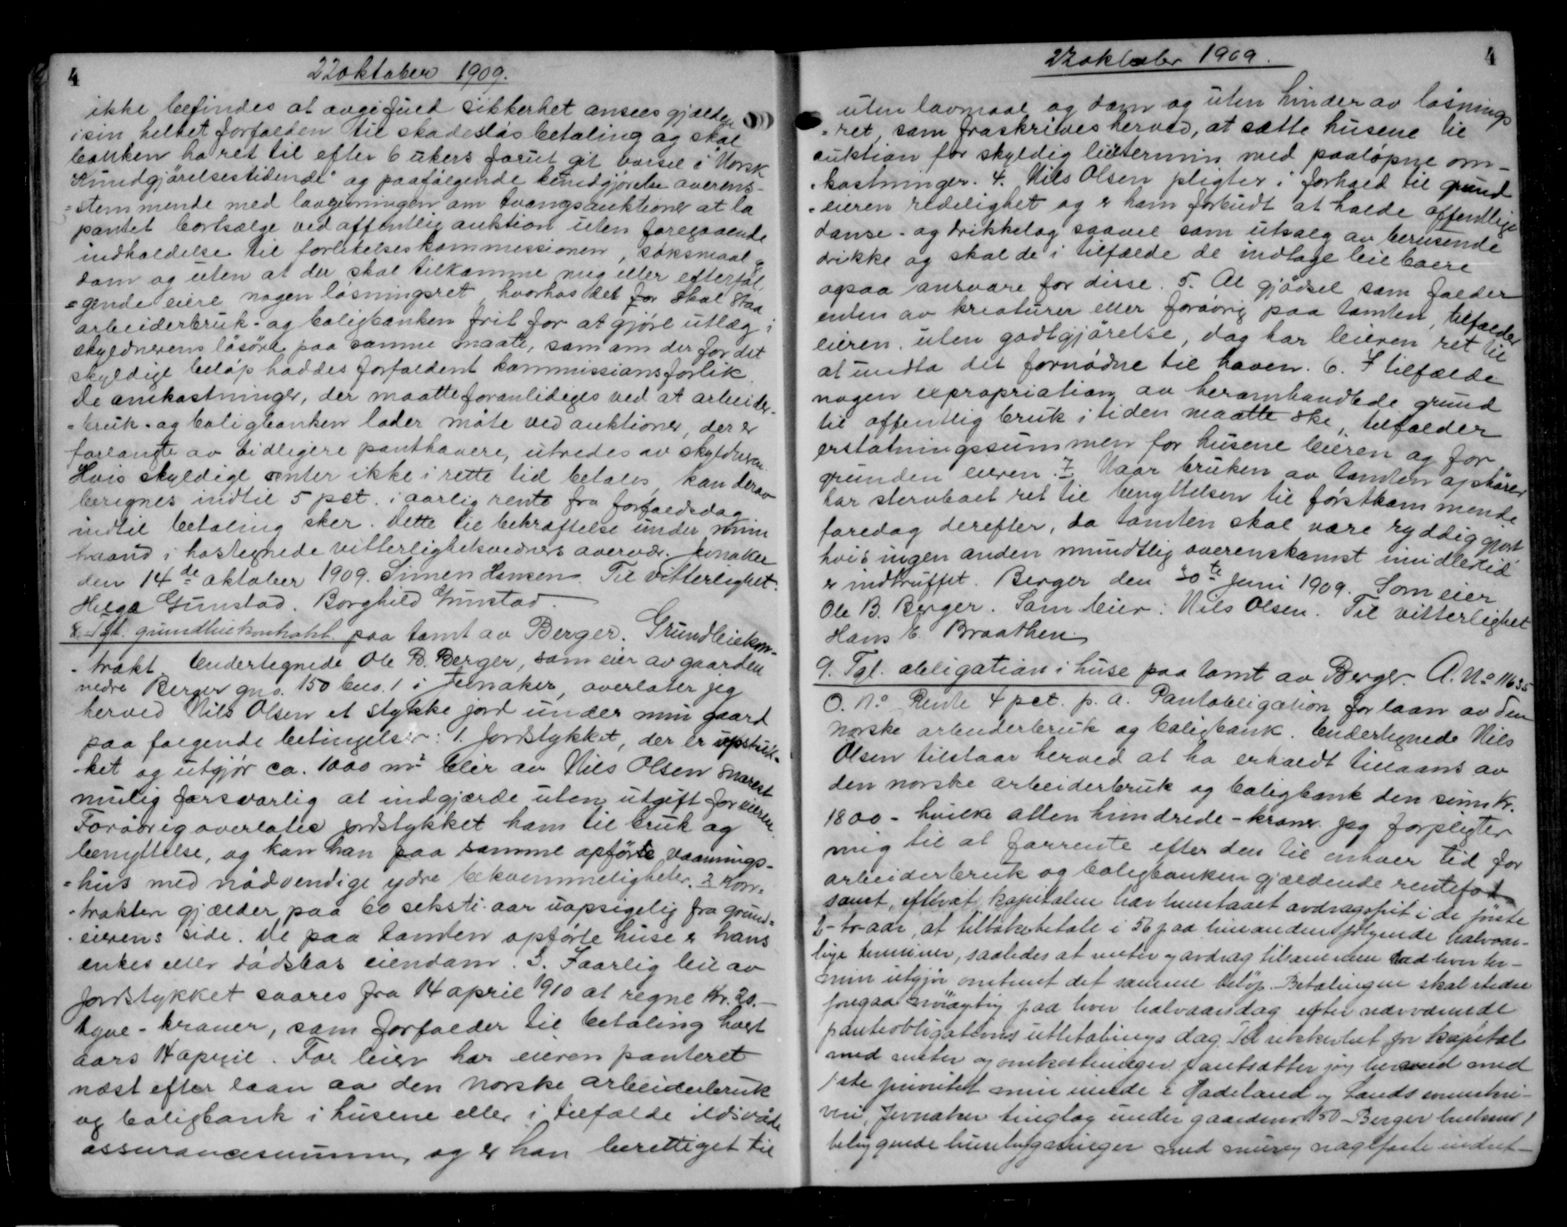 4
22 oktober 1909.
ikke befindes at avgi fuld sikkerhet ansees gjælden
i sin helhet forfalden til skadeslös betaling og skal
banken ha ret til efter 6 ukers forut git varsel i "Norsk
Kundgjörelsestidende" og paafölgende kundgjörelse overens-
=stemmende med lovgivningen om tvangsauktioner at la
pantet bortsælge ved offentlig auktion uten foregaaende
indkaldelse til forlikelseskommissionen, söksmaal og
dom og uten at der skal tilkomme mig eller efterföl-
=gende eiere nogen lösningsret, hvorhos det for skal staa
arbeiderbruk- og boligbanken frit for at gjöre utlæg i
skyldnerens lösöre paa samme maate, som om der for det
skyldige belöp haddes forfaldent kommissionsforlik.
De omkostninger, der maatte foranlediges ved at arbeider-
=bruk- og boligbanken lader möte ved auktioner, der er
forlangte av tidligere panthavere, utredes av skyldneren.
Hvis skyldige renter ikke i rette tid betales, kan derav
beregnes indtil 5 pct. i aarlig rente fra forfaldsdag
indtil betaling sker. Dette til bekræftelse under min
haand i hostegnede vitterlighetsvidners overvær. Jevnaker
den 14de oktober 1909. Simen Hansen. Til vitterlighet:
Helga Grinstad. Borghild Grinstad.
8. Tgl. grundleiekontrakt paa tomt av Berger. Grundleiekon-
-trakt. Undertegnede Ole B. Berger, som eier av gaarden
nedre Berger gno. 150 bno. 1 i Jevnaker, overlater jeg
herved Nils Olsen et stykke jord under min gaard
paa fölgende betingelser: 1. Jordstykket, der er opstuk-
-ket og utgjör ca. 1000 m² blir av Nils Olsen snarest
mulig forsvarlig at indgjærde uten utgift for eieren.
Forövrig overlates jordstykket ham til bruk og
benyttelse, og kan han paa samme opföre vaanings-
=hus med nödvendige ydre bekvemmeligheter. 2. Kon-
-trakten gjælder paa 60 seksti aar uopsigelig fra grund-
-eierens side. De paa tomten opförte huse er hans
enkes eller dödsbos eiendom. 3. I aarlig leie av
jordstykket svares fra 14 april 1910 at regne Kr. 20.-
tyve - kroner, som forfalder til betaling hvert
aars 14 april. For leien har eieren panteret
næst efter laan av den norske arbeiderbruk
og boligbank i husene eller i tilfælde ildsvaade
assurancesummen, og er han berettiget til
22 oktober 1909.
4
uten lovmaal og dom og uten hinder av lösnings
-ret, som fraskrives herved, at sætte husene til
auktion for skyldig leietermin med paalöpne om-
-kostninger. 4. Nils Olsen pligter i forhold til grund
-eieren redelighet og er ham forbudt at holde offentlige
danse- og drikkelag saavel som utsalg av berusende
drikke og skal de i tilfælde de indtage leieboere
ogsaa ansvare for disse. 5. Al gjödsel som falder
enten av kreaturer eller forövrig paa tomten, tilfalder
eieren uten godtgjörelse, dog har leieren ret til
at undta det fornödne til haven. 6. I tilfælde
nogen expropriation av heromhandlede grund
til offentlig bruk i tiden maatte ske, tilfalder
erstatningssummen for husene leieren og for
grunden eieren. 7. Naar bruken av tomten ophörer
har stervboet ret til benyttelsen til förstkommende
faredag derefter, da tomten skal være ryddiggjort
hvis ingen anden mundtlig overenskomst imidlertid
er indtruffet. Berger den 30te juni 1909. Som eier
Ole B. Berger. Som leier: Nils Olsen. Til vitterlighet
Hans E. Braathen
9. Tgl. obligation i huse paa tomt av Berger. A. No 11635
O. No Rente 4 pct. p. a. Pantobligation for laan av den
norske arbeiderbruk og boligbank. Undertegnede Nils
Olsen tilstaar herved at ha erholdt tillaans av
den norske arbeiderbruk og boligbank den sum Kr.
1800 - hvilke atten hundrede - kroner jeg forpligter
mig til at forrente efter den til enhver tid for
arbeiderbruk og boligbanken gjældende rentefot
samt, eftersat kapitalen har henstaaet avdragsfrit i de förste
2 - to aar, at tilbakebetale i 56 paa hinanden fölgende halvaar-
lige terminer, saaledes at renter og avdrag tilsammen ved hver ter-
min utgjör omtrent det samme belöp. Betalingen skal stedse
foregaa nöiagtig paa hver halvaarsdag efter nærværende
pantobligations utbetalings dag. Til sikkerhet for kapital
med renter og omkostninger pantsætter jeg herved med
1ste prioritet mine i Hadeland og Lands sorenskri-
veri, Jevnaker tinglag under gaardsno 150 Berger bruksno 1
beliggende husebygninger med mur og nagelfaste indret-